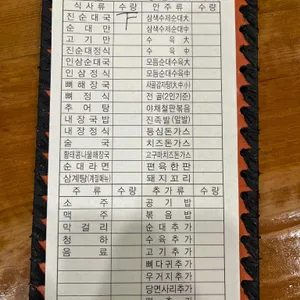 식사류 수량 안주류 수량
진순대국 ㅜ 삼색수제순대大
순대만 삼색수제순대中
고기만 수육大
진순대정식 수육中
인삼순대국 모듬순대수육大
인삼정식 모듬순대수육中
뼈해장국 사골김치탕(大中小)
뼈정식 전골(2인기준)
추어탕 야채철판볶음
내장국밥 진족발(앞발)
내장정식 등심돈가스
술국 치즈돈가스
황태콩나물해장국 고구마치즈돈가스
순대라면 편육한판
삼계탕(계절메뉴) 돼지꼬리
주류 수량 추가류 수량
소주 공기밥
맥주 볶음밥
막걸리 순대추가
청하 수육추가
음료 고기추가
뼈다귀추가
우거지추가
당면사리추가